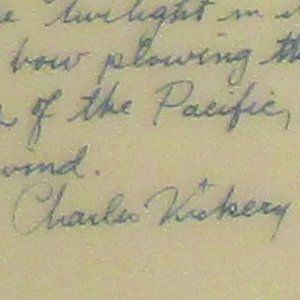 twilight in
bow plowing the
of the Pacific,
wind.
Charles Vickery